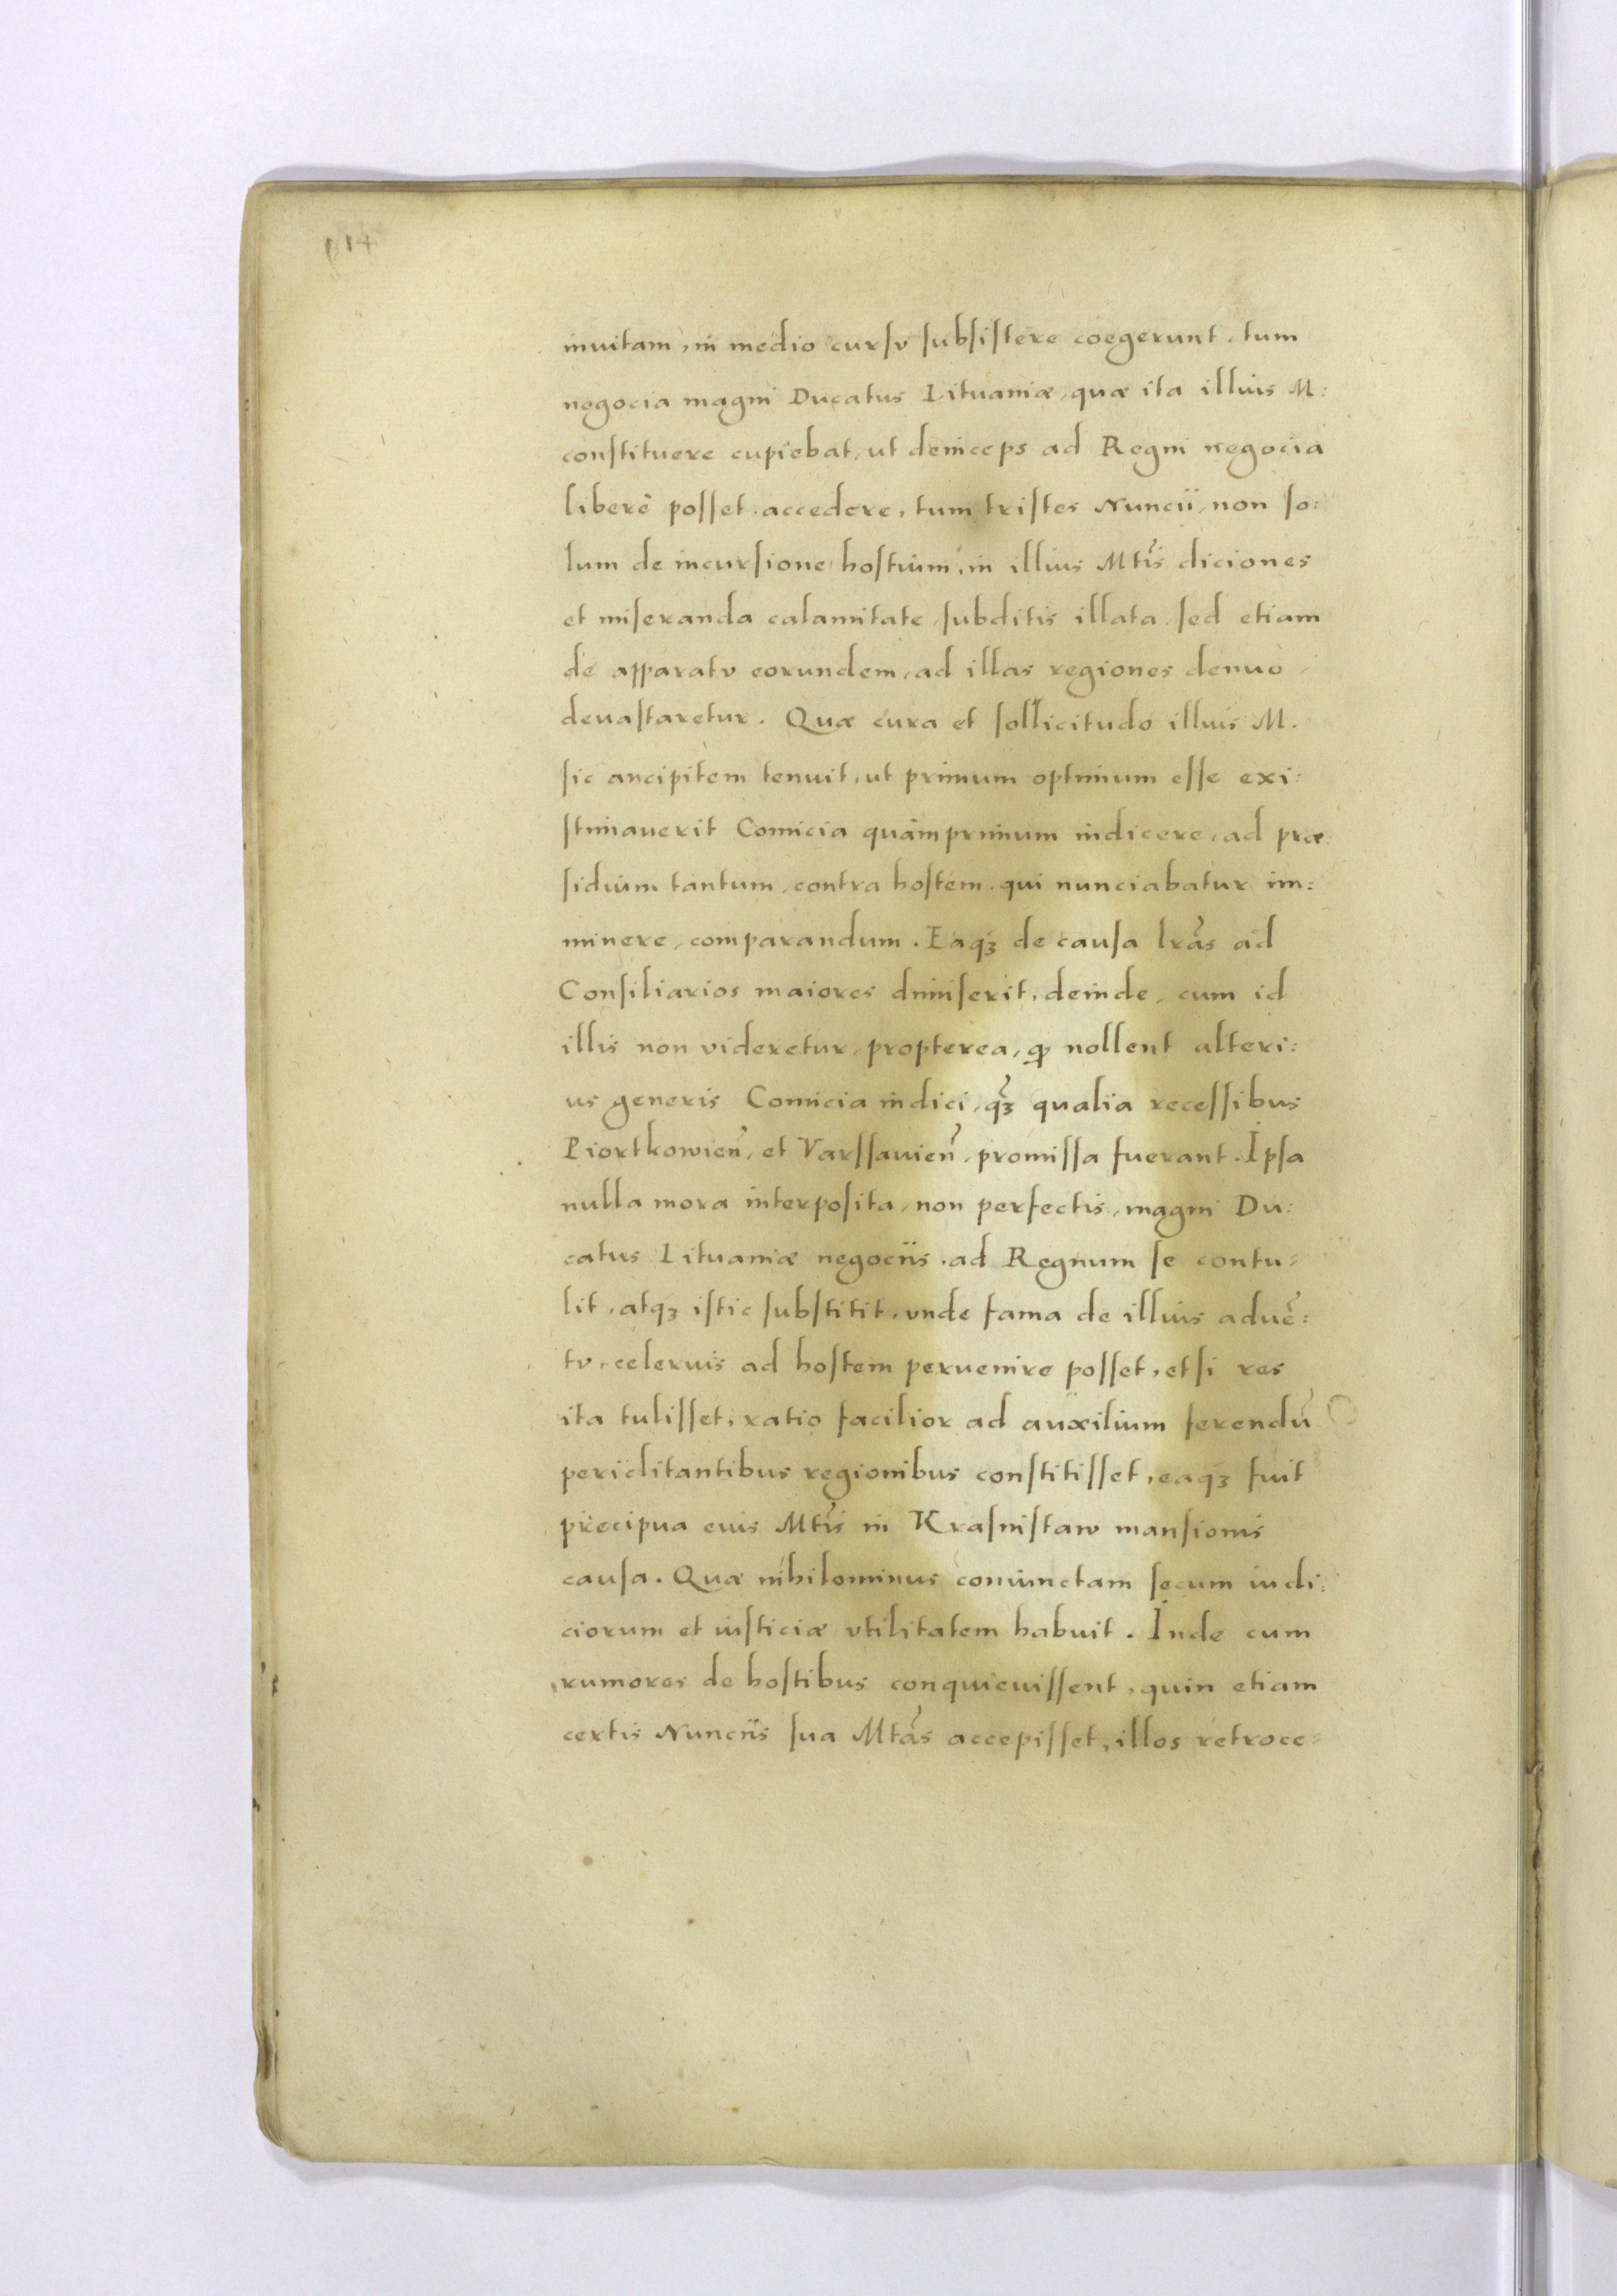 inuitam, in medio cursv subsistere coegerunt, tum
negocia magni Ducatus Lituaniæ, quæ ita illius M:
constituere cupiebat, ut deinceps ad Regni negocia
liberè posset accedere, tum tristes Nuncii, non so:
lum de incursione hostium, in illius Mtis diciones
et miseranda calamitate, subditis illata, sed etiam
de apparatv eorundem, ad illas regiones denuo
deuastaretur. Quæ cura et sollicitudo illius M.
sic ancipitem tenuit, ut primum optimum esse exi:
stimauerit Comicia quàmprimum indicere, ad præ
sidium tantum, contra hostem, qui nunciabatur im:
minere, comparandum. Eaqʒ de causa lras ad
Consiliarios maiores dimiserit, deinde, cum id
illis non videretur, propterea, ꝙ nollent alteri:
us generis Comicia indici, qʒ qualia recessibus
Piortkowien̄, et Varssauien̄, promissa fuerant. Ipsa
nulla mora interposita, non perfectis, magni Du:
catus Lituaniæ negociis, ad Regnum se contu-
lit, atqʒ istic substitit, vnde fama de illius aduē:
tv, celerius ad hostem peruenire posset, etsi res
ita tulisset, ratio facilior ad auxilium ferendū
periclitantibus regionibus constitisset, eaqʒ fuit
precipua eius Mtis in Krasnistaw mansionis
causa. Quæ nihilominus coniunctam secum iudi:
ciorum et iusticiæ vtilitatem habuit. Inde cum
rumores de hostibus conquieuissent, quin etiam
certis Nunciis sua Mtas accepisset, illos retroce-